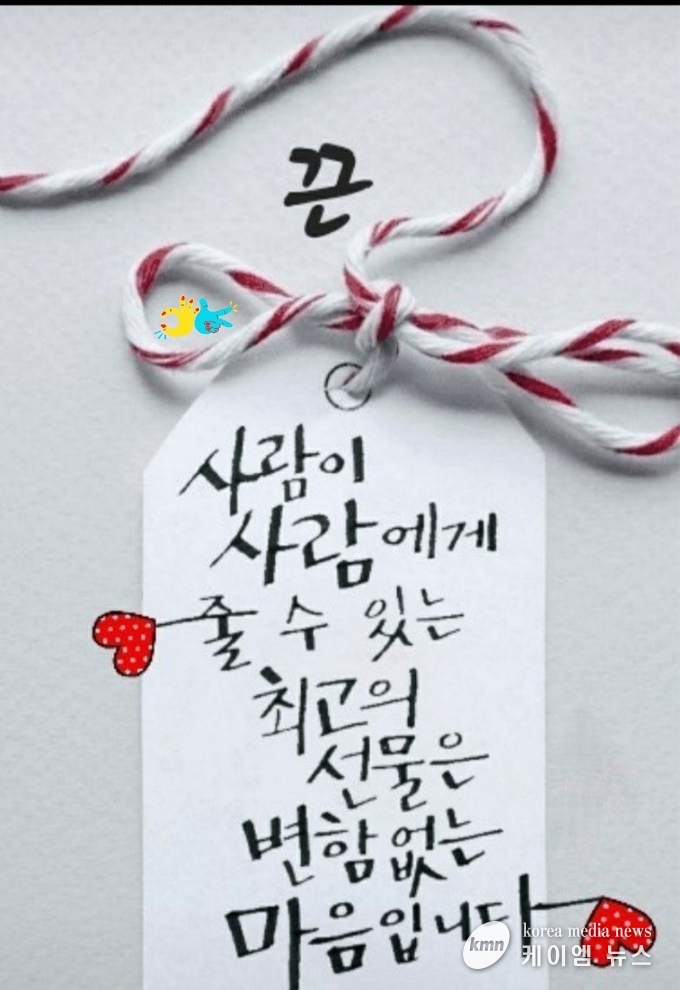 끈
사람이
사람에게
줄 수 있는
최고의
선물은
변함없는
마음입니다
kmn
korea media news
케이엠 뉴스